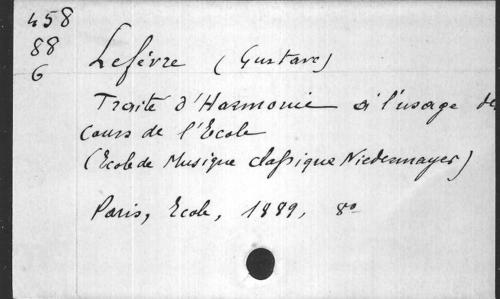 458
88
6
Lefèvre (Gustave)
Traité d'Harmonie à l'usage des
Cours de l'Ecole
(Ecole de Musique classique Niedermayer)
Paris, Ecole, 1889, 8º